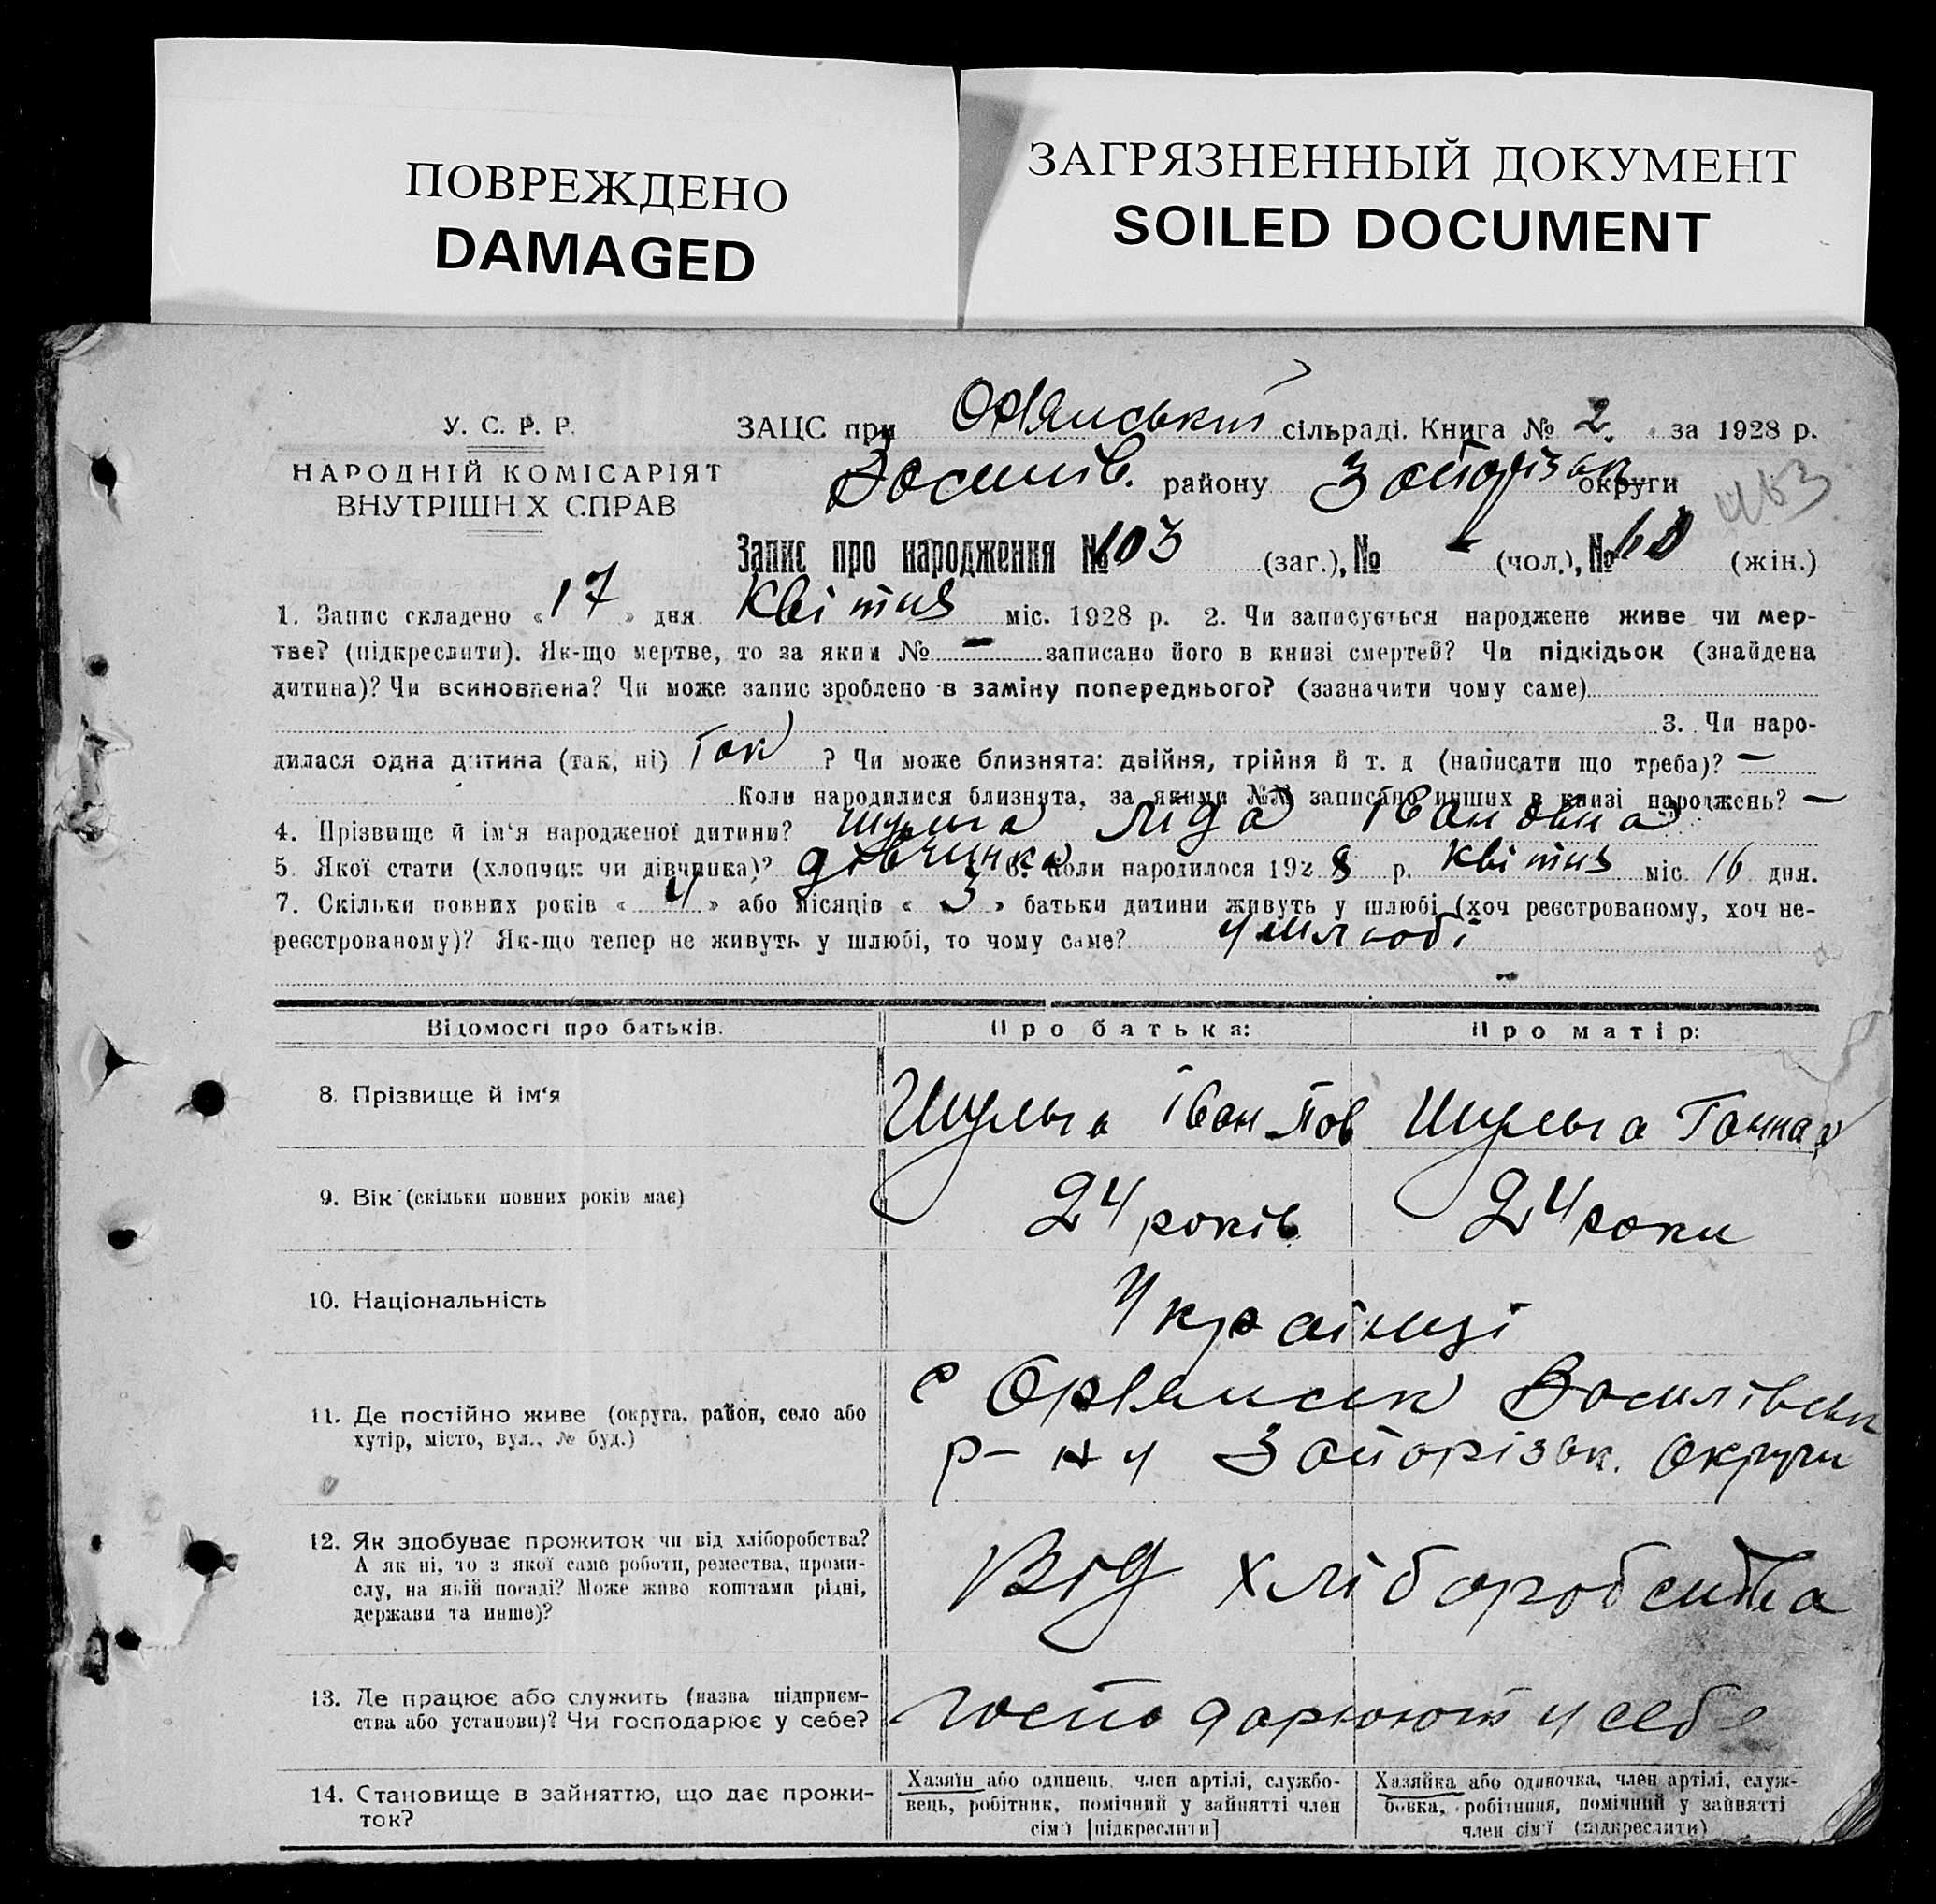 ПОВРЕЖДЕНО
DAMAGED
ЗАГРЯЗНЕННЫЙ ДОКУМЕНТ
SOILED DOCUMENT
У. С. Р. Р.
НАРОДНІЙ КОМІСАРІЯТ
ВНУТРІШН Х СПРАВ
ЗАЦС при Орлянській сільраді. Книга № 2. за 1928 р.
Василів. району Запорізьк округи
Запис про народження № 103 (заг.), № - (чол.), № 60 (жін.)
1. Запис складено « 17 » дня Квітня міс. 1928 р. 2. Чи записується народжене живе чи мер-
тве? (підкреслити). Як-що мертве, то за яким № - записано його в книзі смертей? Чи підкідьок (знайдена
дитина)? Чи всиновлена? Чи може запис зроблено в заміну попереднього? (зазначити чому саме)
3. Чи наро-
дилася одна дитина (так, ні) Так ? Чи може близнята: двійня, трійня й т. д (написати що треба)? —
Коли народилися близнята, за якими №№ записано инших в книзі народжень? —
4. Прізвище й ім‘я народженої дитини? Шульга Ліда Івановна
5. Якої стати (хлопчик чи дівчинка)? дівчинка 6. Коли народилося 1928 р. Квітня міс. 16 дня.
7. Скільки повних років « 4 » або місяців « 3 » батьки дитини живуть у шлюбі (хоч реєстрованому, хоч не-
реєстрованому)? Як-що тепер не живуть у шлюбі, то чому саме? У шлюбі
Відомості про батьків.
Про батька:
Про матір:
8. Прізвище й ім‘я
Шульга Іван Пав
Шульга Ганна
9. Вік (скільки повних років має)
24 років
24 роки
10. Національність
Українці
11. Де постійно живе (округа, район, село або
хутір, місто, вул., № буд.)
с Орлянськ Василівськ
р-ну Запорізьк. Округи
12. Як здобуває прожиток чи від хліборобства?
А як ні, то з якої саме роботи, ремества, проми-
слу, на якій посаді? Може живе коштами рідні,
держави та инше)?
Від хліборобства
13. Де працює або служить (назва підприєм-
ства або установи)? Чи господарює у себе?
господарюют у себе
14. Становище в зайняттю, що дає прожи-
ток?
Хазяїн або одинець, член артілі, службо-
вець, робітник, помічний у зайнятті член
сім‘ї [підкреслити]
Хазяйка або одиночка, член артілі, служ-
бовка, робітниця, помічний у зайнятті
член сім‘ї (підкреслити)